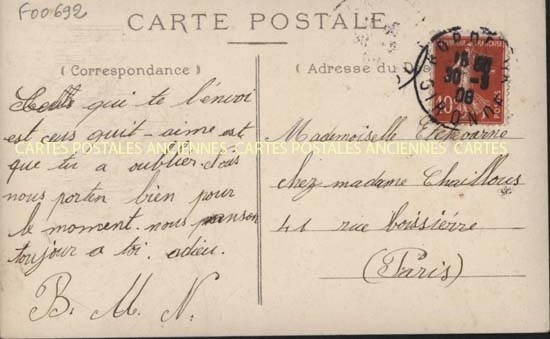 F00692
CARTE POSTALE
( Correspondance )
( Adresse du
qui te l'envoi
est ceus quit-aime est
CARTES POSTALES ANCIENNES CARTES POSTALES ANCIENNES CARTES POSTALES
que tu a oublier.
nous porten bien pour
le moment. nous penson
toujour a toi. adieu.
B. M. N.
Mademoiselle
chez madame Chaillous
41 rue boissierre
(Paris)
GIRONDE
30
08
10